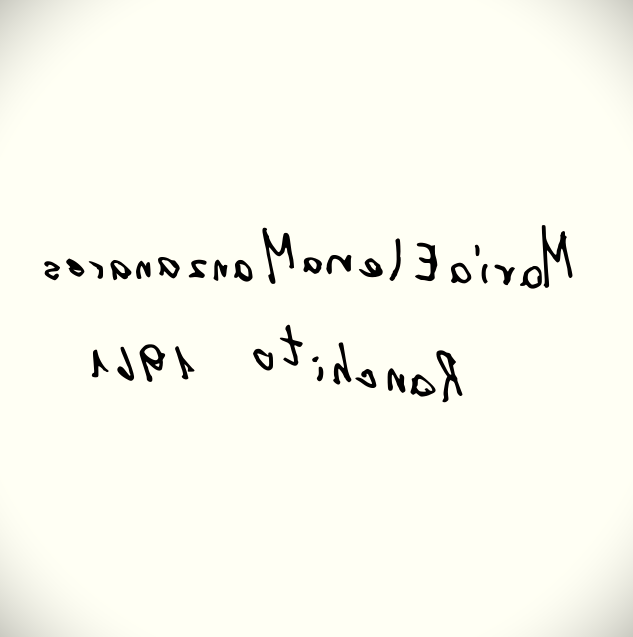 Maria Elena Manzanares
Ranchito 1961